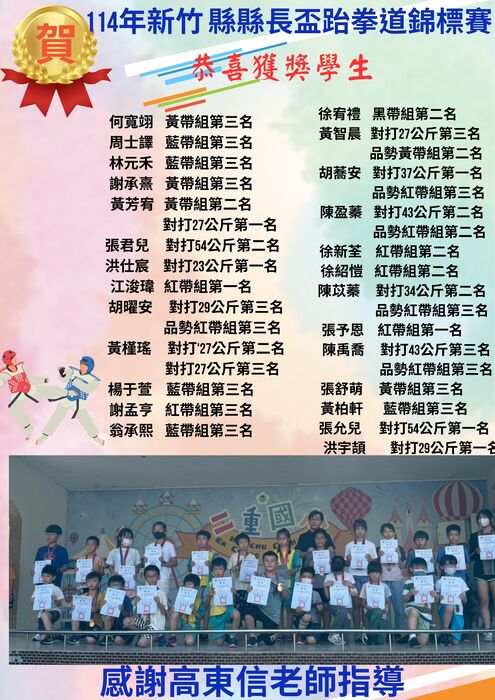 賀
114年新竹縣縣長盃跆拳道錦標賽
恭喜獲獎學生
何寬翊 黃帶組第三名
周士譯 藍帶組第三名
林元禾 藍帶組第三名
謝承熹 黃帶組第三名
黃芳宥 黃帶組第二名
對打27公斤第一名
張君兒 對打54公斤第二名
洪仕宸 對打23公斤第一名
江浚瑋 紅帶組第一名
胡曜安 對打29公斤第三名
品勢紅帶組第三名
黃槿瑤 對打'27公斤第二名
對打27公斤第三名
楊于萱 藍帶組第三名
謝孟亨 紅帶組第三名
翁承熙 藍帶組第三名
徐宥禮 黑帶組第二名
黃智晨 對打27公斤第三名
品勢黃帶組第二名
胡蕎安 對打37公斤第一名
品勢紅帶組第三名
陳盈蓁 對打43公斤第二名
品勢紅帶組第二名
徐新荃 紅帶組第二名
徐紹愷 紅帶組第二名
陳苡蓁 對打34公斤第二名
品勢紅帶組第三名
張予恩 紅帶組第一名
陳禹喬 對打43公斤第三名
品勢紅帶組第三名
張舒萌 黃帶組第三名
黃柏軒 藍帶組第三名
張允兒 對打54公斤第一名
洪宇頡 對打29公斤第一名
三重國
感謝高東信老師指導